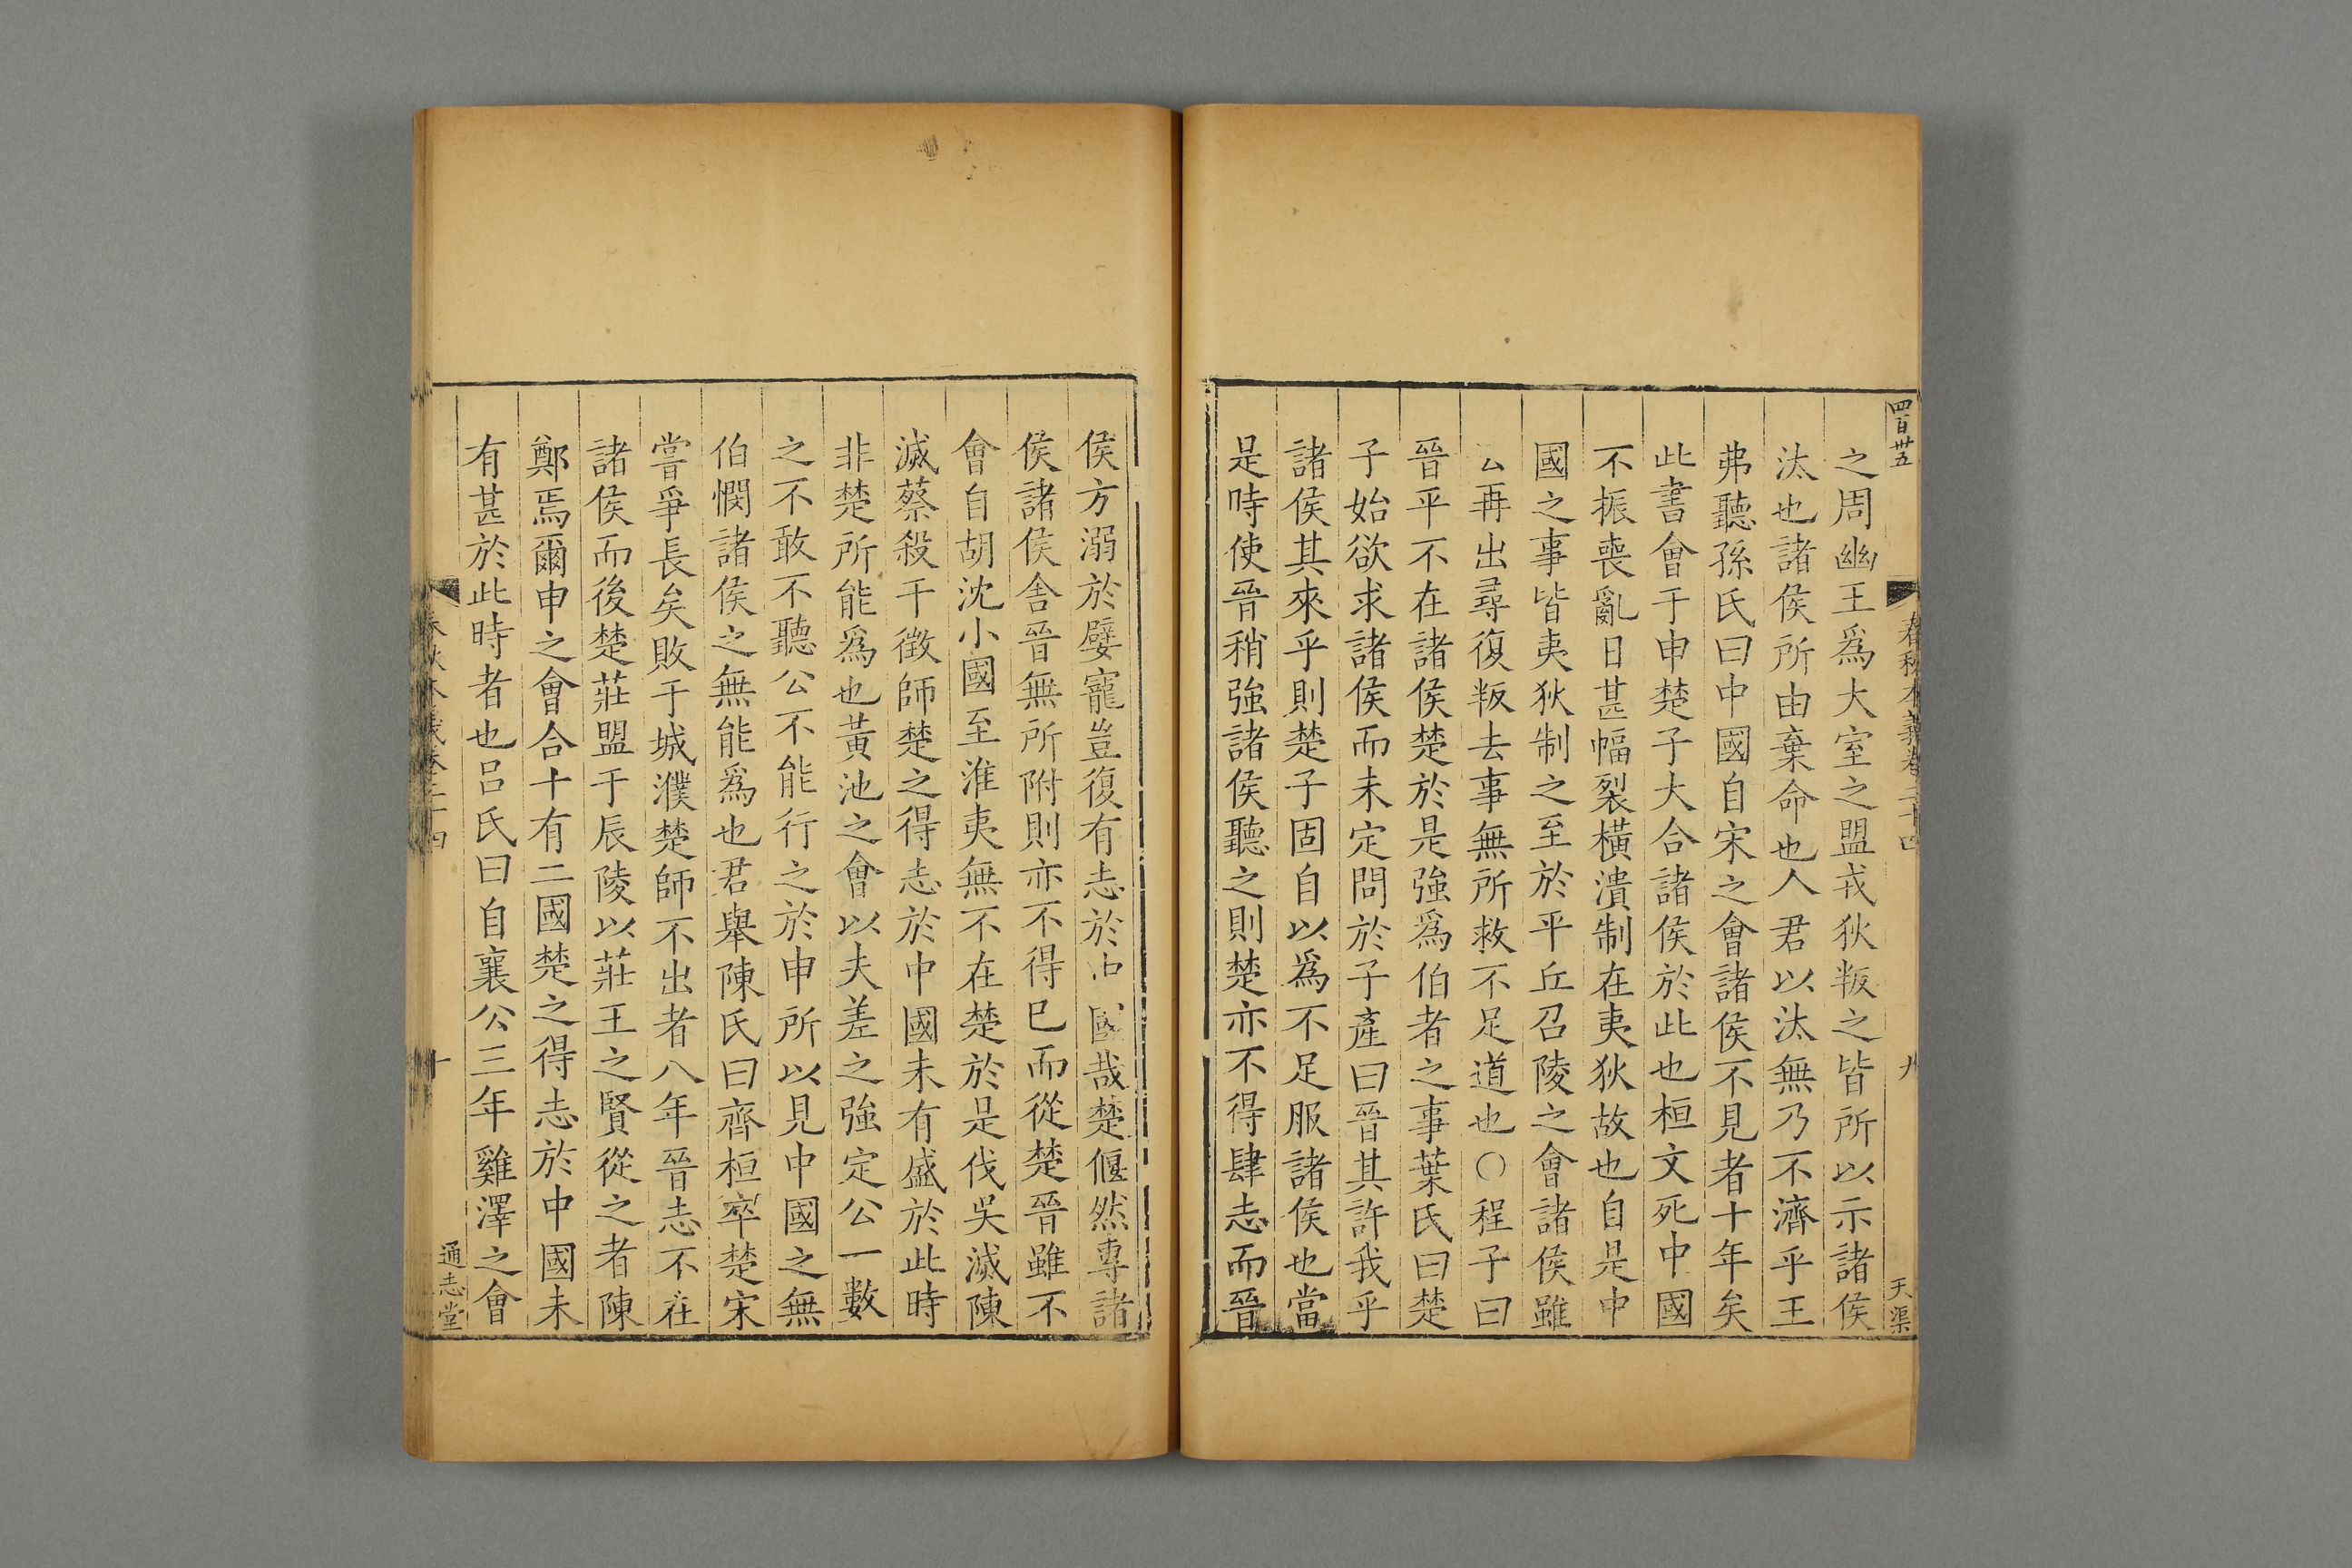 四百卅五
春秋本義卷二十四
九
天渠
之周幽王爲大室之盟戎狄叛之皆所以示諸侯
汰也諸侯所由棄命也人君以汰無乃不濟乎王
弗聽孫氏曰中國自宋之會諸侯不見者十年矣
此書會于申楚子大合諸侯於此也桓文死中國
不振喪亂日甚幅裂橫潰制在夷狄故也自是中
國之事皆夷狄制之至於平丘召陵之會諸侯雖
云再出尋復叛去事無所救不足道也〇程子曰
晉平不在諸侯楚於是強爲伯者之事葉氏曰楚
子始欲求諸侯而未定問於子產曰晉其許我乎
諸侯其來乎則楚子固自以爲不足服諸侯也當
是時使晉稍強諸侯聽之則楚亦不得肆志而晉
侯方溺於嬖寵豈復有志於中國哉楚偃然專諸
侯諸侯舍晉無所附則亦不得已而從楚晉雖不
會自胡沈小國至淮夷無不在楚於是伐吳滅陳
滅蔡殺干徵師楚之得志於中國未有盛於此時
非楚所能爲也黃池之會以夫差之強定公一數
之不敢不聽公不能行之於申所以見中國之無
伯憫諸侯之無能爲也君舉陳氏曰齊桓卒楚宋
嘗爭長矣敗于城濮楚師不出者八年晉志不在
諸侯而後楚莊盟于辰陵以莊王之賢從之者陳
鄭焉爾申之會合十有二國楚之得志於中國未
有甚於此時者也呂氏曰自襄公三年雞澤之會
春秋本義卷二十四
十
通志堂